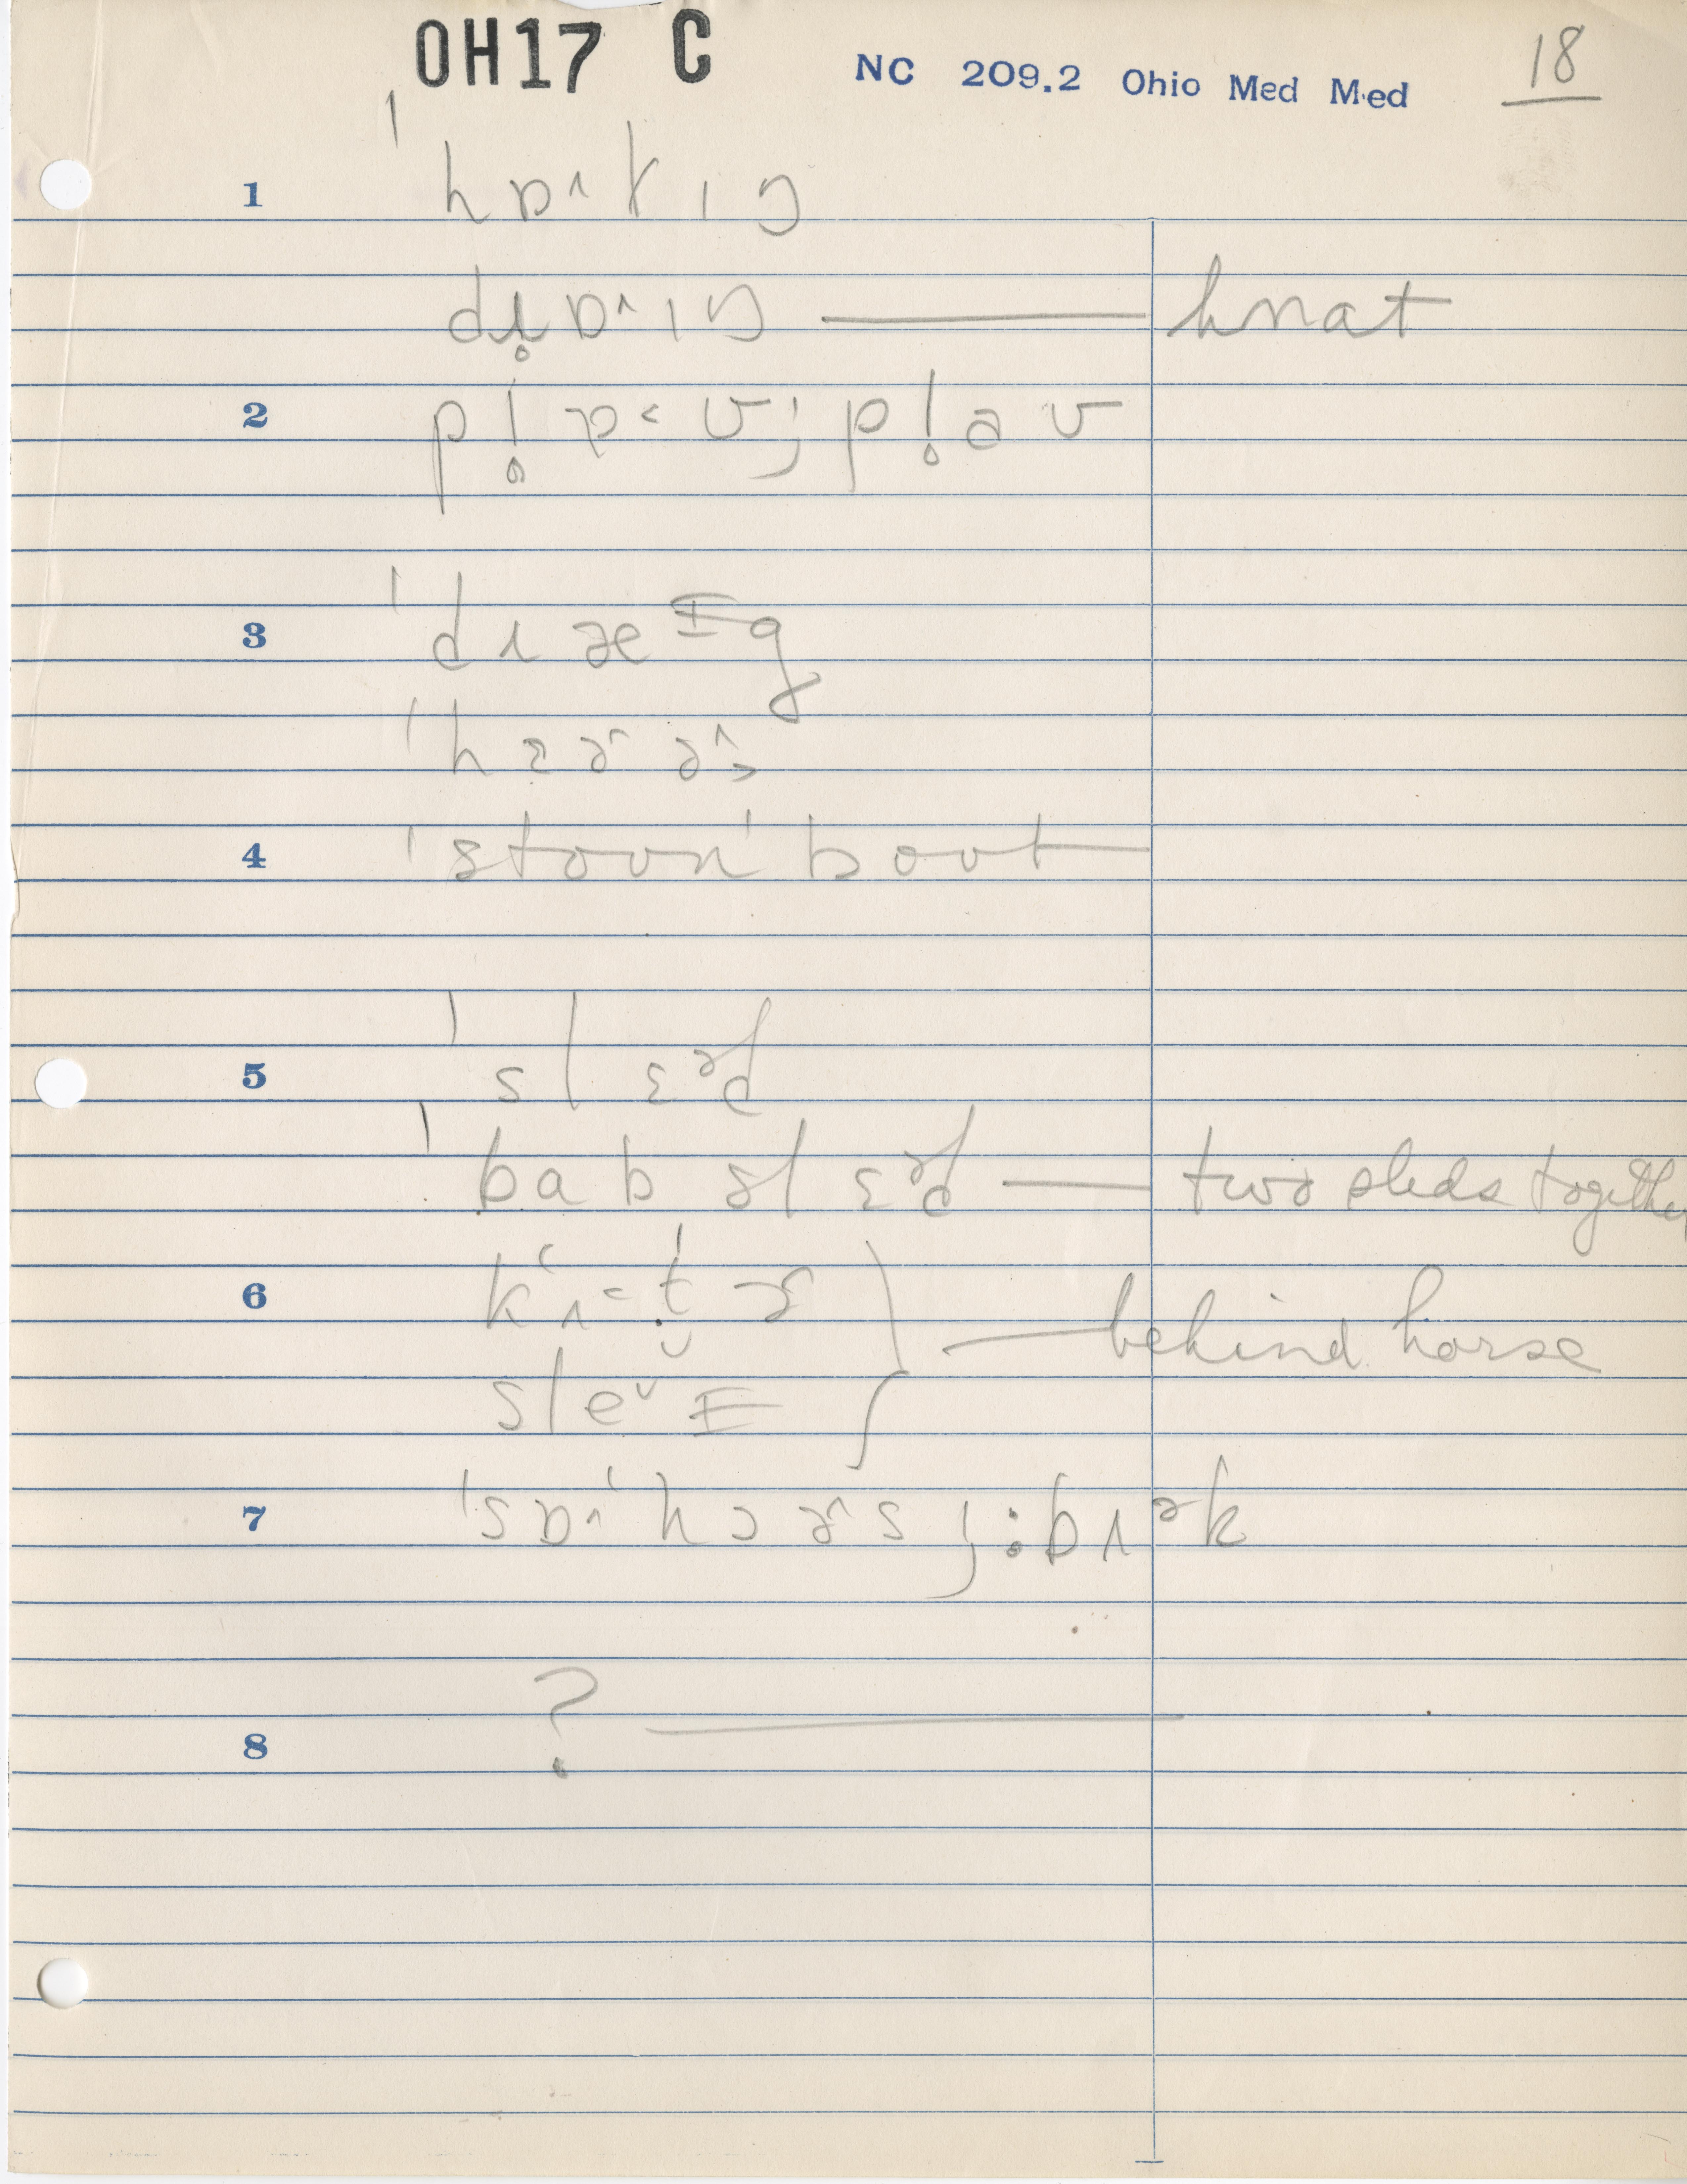 OH17 C NC 209.2 Ohio Med Med 18
1 ˈhɒ˄kɪŋ
drɒ˄ɪŋ — hnat
2 pl̥ɒ˂ʊ; pl̥aʊ
3 ˈdɹæᶦg
ˈhɛɚ˄ɚ˃
4 ˈstoʊnˈboʊt
5 ˈslɛᵊd
ˈbabslɛᵊd — two sleds together
6
sle˅ɪ — behind horse
7 ˈsɒ˄ˈhɔɚ˄s ; : bɹɪᵊk
8 ? —